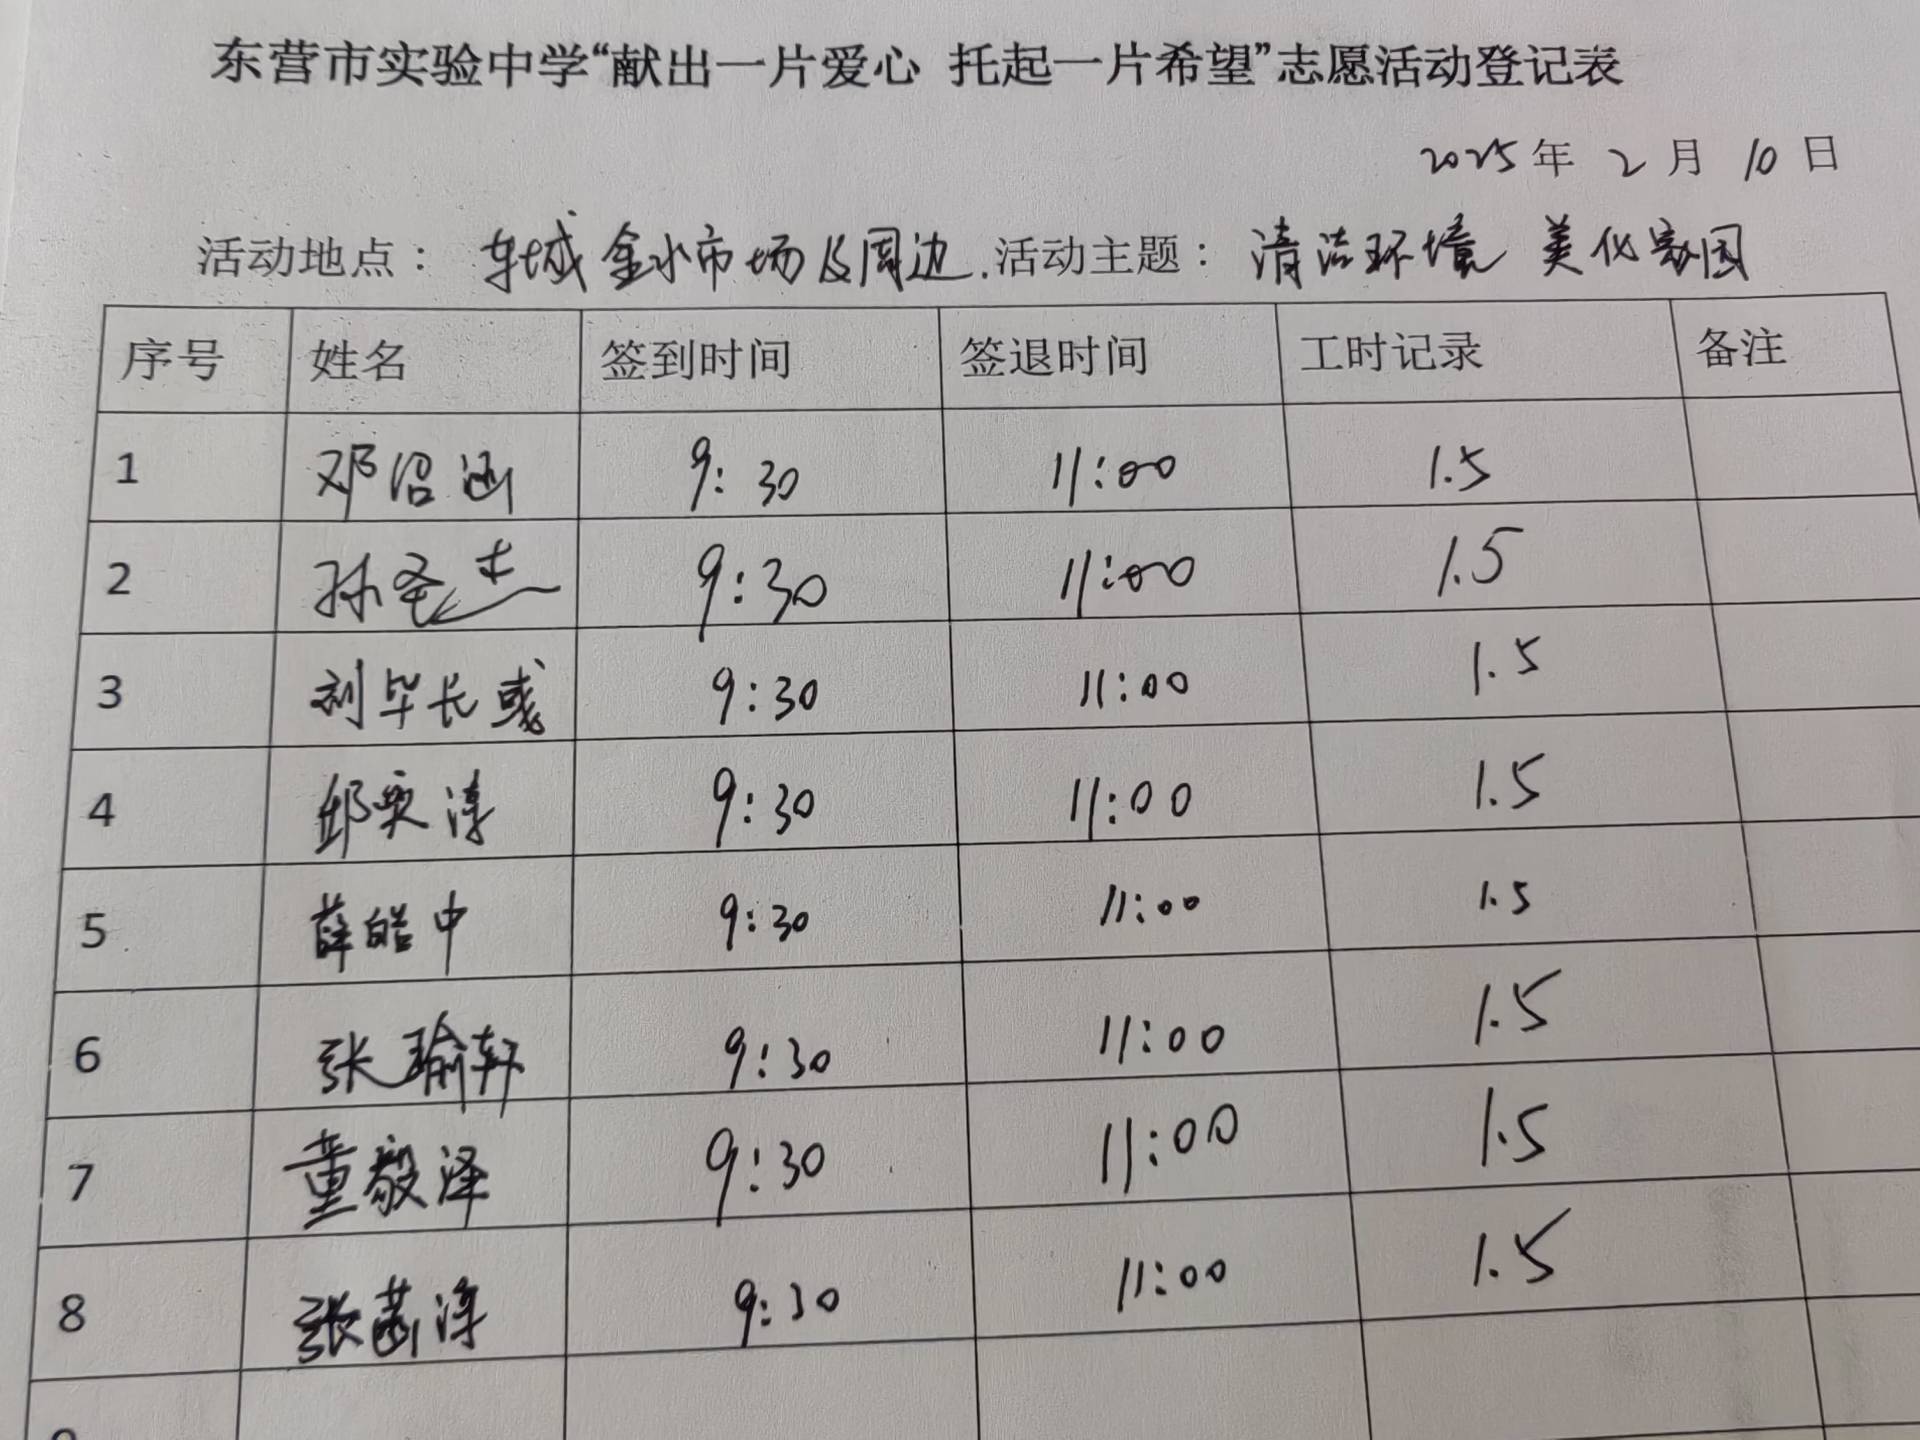 东营市实验中学“献出一片爱心 托起一片希望”志愿活动登记表
2025年 2月 10日
活动地点： 东城金水市场及周边. 活动主题： 清洁环境 美化家园
序号 姓名 签到时间 签退时间 工时记录 备注
1 邓召涵 9:30 11:00 1.5
2 孙圣杰 9:30 11:00 1.5
3 刘毕长彧 9:30 11:00 1.5
4 邱奕淳 9:30 11:00 1.5
5 薛皓中 9:30 11:00 1.5
6 张瑜轩 9:30 11:00 1.5
7 董毅泽 9:30 11:00 1.5
8 张菡淳 9:30 11:00 1.5